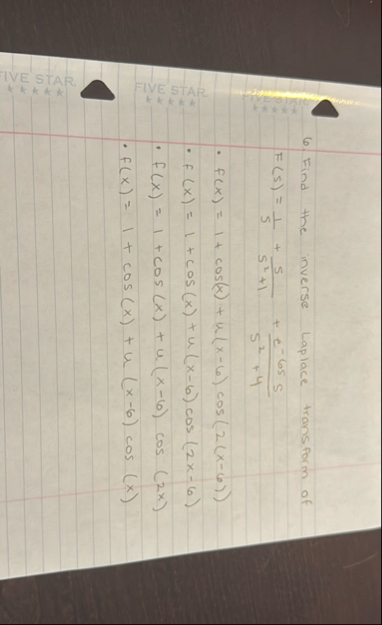 6. Find the inverse Laplace transform of
F(s) = 1/s + s/s²+1 + e^-6s s/s²+4
• f(x) = 1 + cos(x) + u(x-6) cos(2(x-6))
• f(x) = 1 + cos(x) + u(x-6) cos(2x-6)
• f(x) = 1 + cos(x) + u(x-6) cos (2x)
• f(x) = 1 + cos(x) + u(x-6) cos (x)
FIVE STAR
FIVE STAR
FIVE STAR